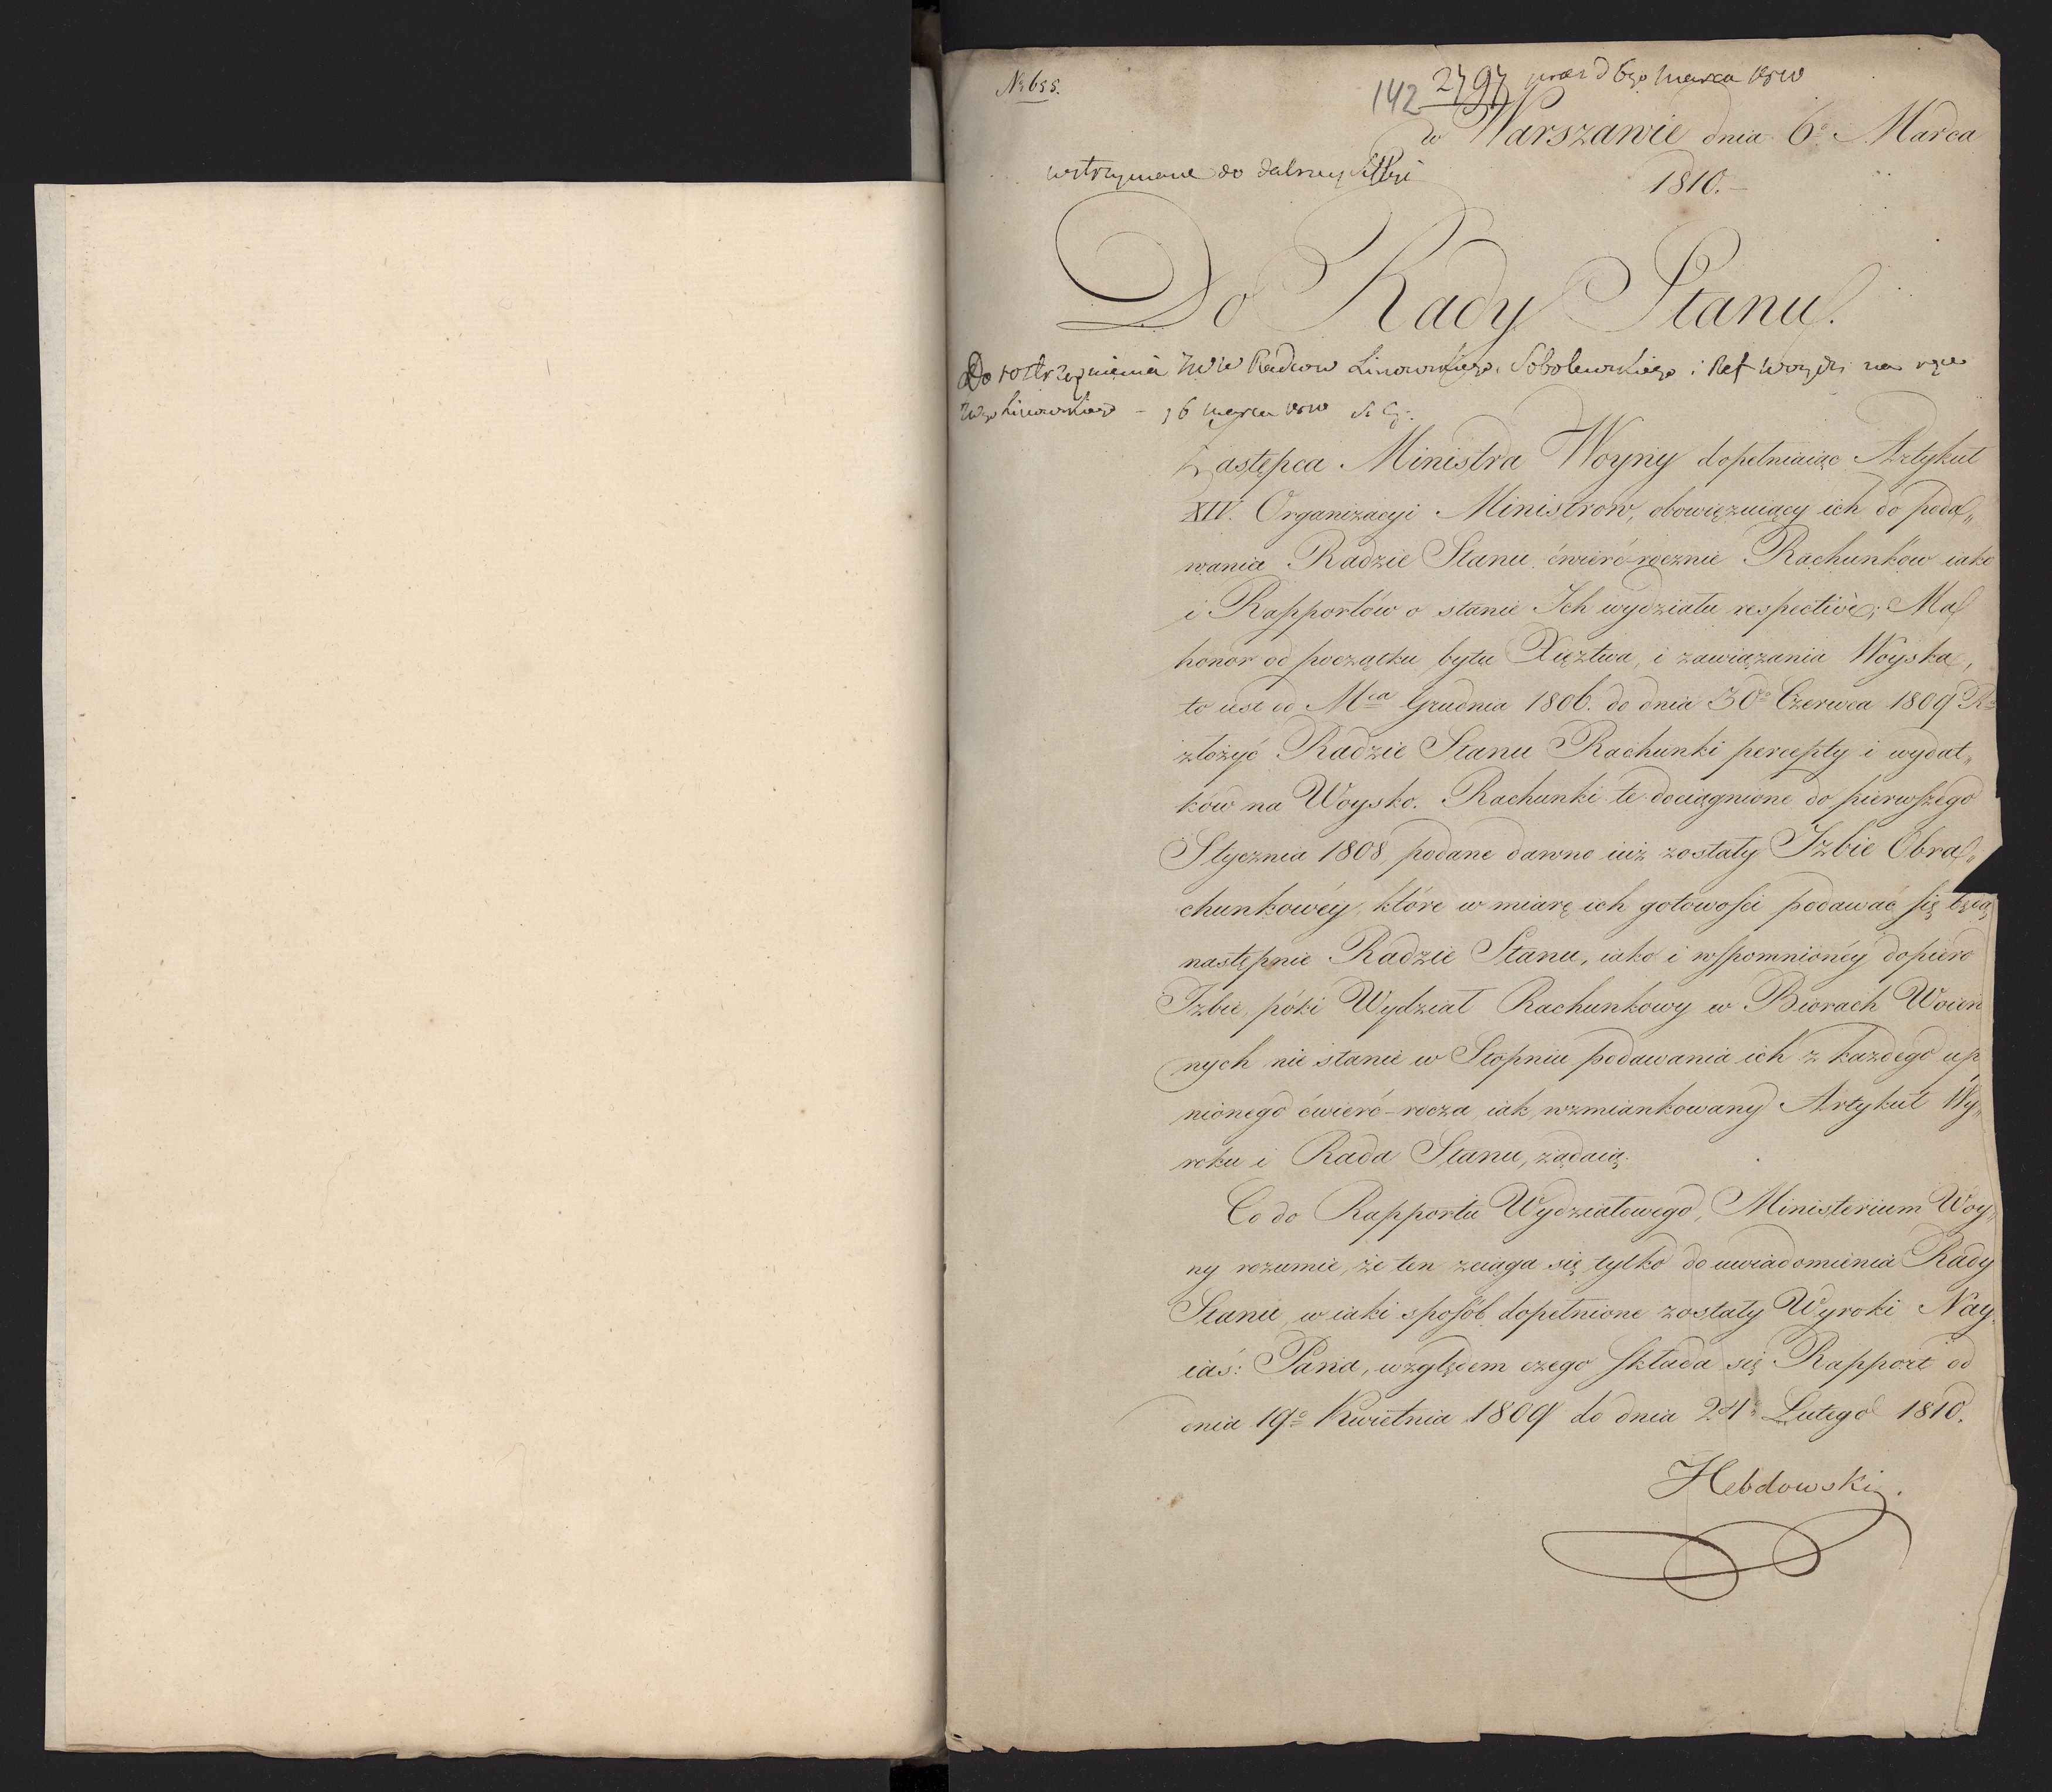 No 655.
142 2797 praes d 6go Marca 1810
w Warszawie dnia 6o Marca
wstrzymane do dalszey
1810.
Do Rady Stanu.
Do rostrząśnienia JWW Radcow Linowskiego, Sobolewskiego i Ref na ręce
JWgo Linowskiego – 6 marca 1810
Zastępca Ministra Woyny dopełniaiąc Artykuł
XIV. Organizacyi Ministrow, obowięzuiący ich do poda„
wania Radzie Stanu ćwierć-rocznie Rachunków iako
i Rapportów o stanie Ich wydziału respectivè; Ma
honor od początku bytu Xięztwa, i zawiązania Woyska,
to iest od Mca Grudnia 1806. do dnia 30o Czerwca 1809 R
złożyć Radzie Stanu Rachunki percepty i wydat„
ków na Woysko. Rachunki te dociągnione do pierwszego
Stycznia 1808, podane dawno iuż zostały Izbie Obra„
chunkowéy, które w miarę ich gotowości podawać się będą
następnie Radzie Stanu, iako i wspomnionéy dopiero
Izbie, póki Wydział Rachunkowy w Biorach Woien
nych nie stanie w Stopniu podawania ich z każdego up
nionego ćwierć-rocza, iak wzmiankowany Artykuł Wy„
roku i Rada Stanu, żądaią.
Co do Rapportu Wydziałowego, Ministerium Woy„
ny rozumie, że ten zciąga się tylko do uwiadomienia Rady
Stanu, w iaki sposób dopełnione zostały Wyroki Nay
iaś: Pana, względem czego składa się Rapport od
dnia 19o Kwietnia 1809 do dnia 24o Lutego 1810.
Hebdowski.